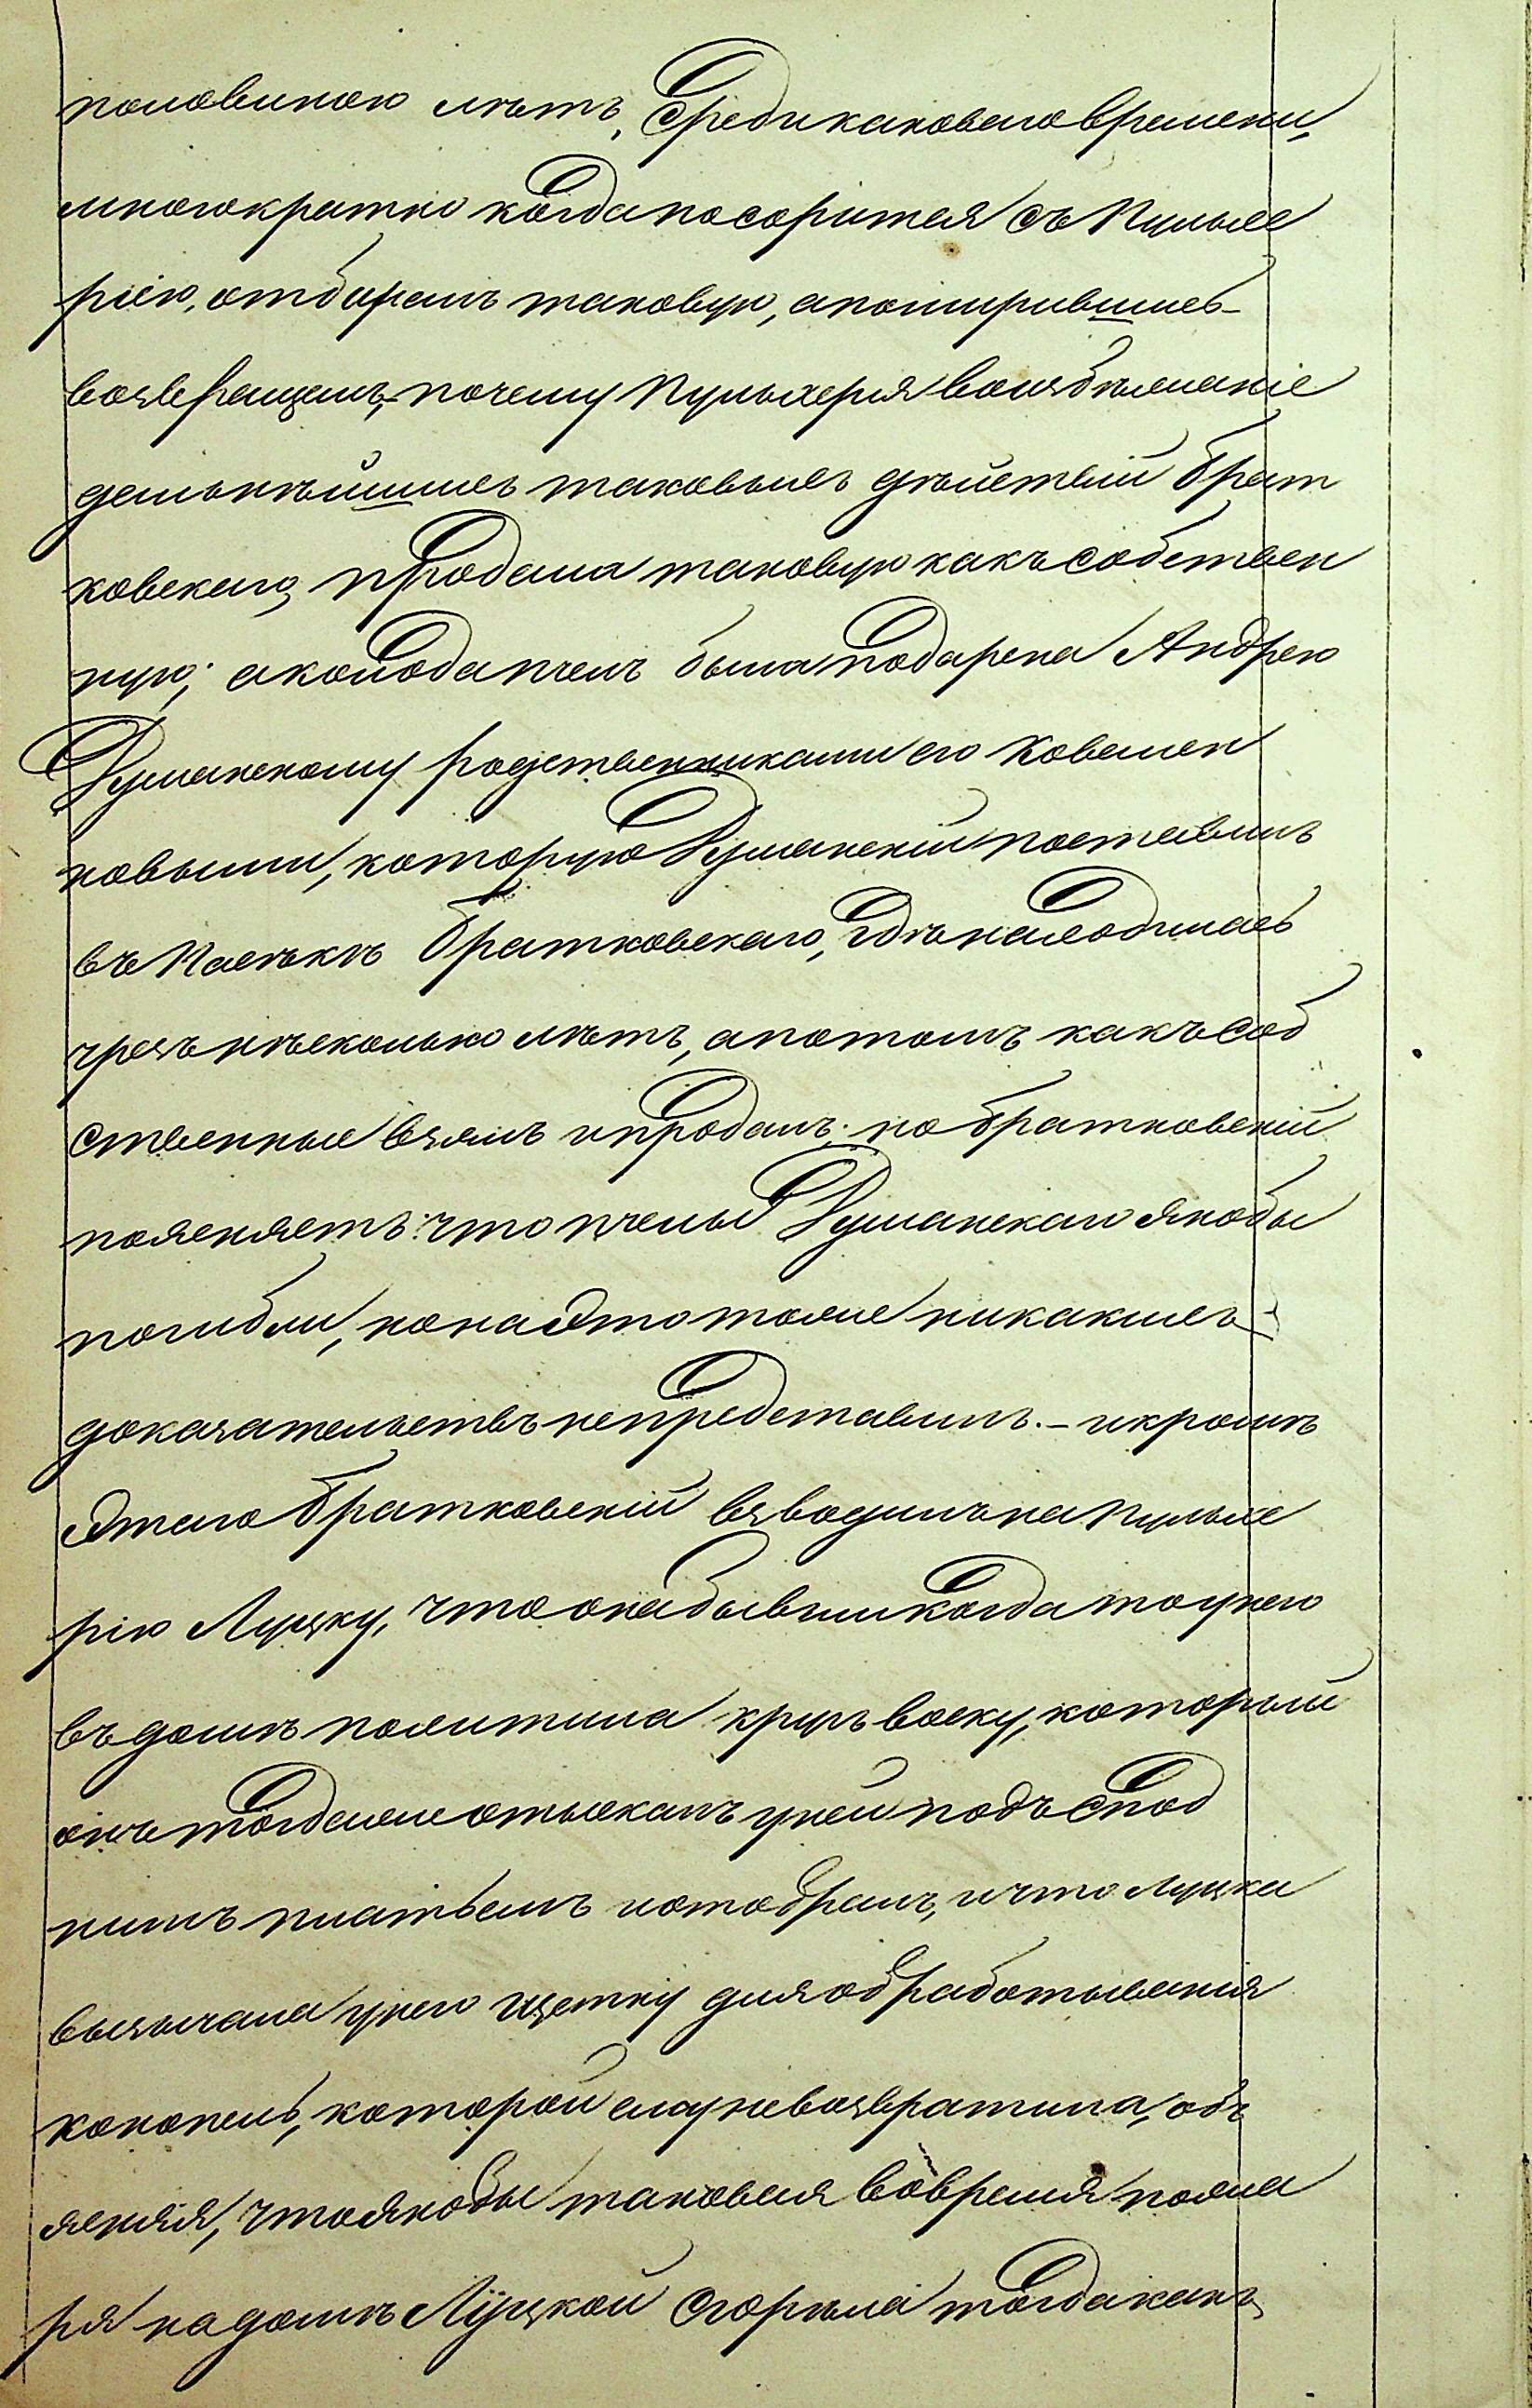 половиною лѣтъ, Среди каковаго времени,
многократно когда посорится съ Пульхе
ріею, отбиралъ таковую, а помирившись
возвращалъ, почему Пульхерія во избѣжаніе
дальнѣйшихъ таковыхъ дѣйствій Брат
ковскаго, продала таковую какъ собствен
ную; а колода пчелъ была подарена Андрею
Думанскому родственниками его Ковален
ковыми, которую Думанскій поставилъ
въ Пасѣкѣ Братковскаго, гдѣ находилась
чрезъ нѣсколько лѣтъ, а потомъ какъ соб
ственные взялъ и продалъ; но Братковскій
поясняетъ: что пчелы Думанскаго якобы
погибли, но на это тоже никакихъ
доказательствъ не представилъ. – и кромѣ
этаго Братковскій взводилъ на Пульхе
рію Луцку, что она бывши когда то у него
въ домѣ похитила кругъ воску, который
онъ тогда же отыскалъ у ней подъ спод
нимъ платьемъ и отобралъ, и что Луцка
вызычала у него щетку для обработыванія
конопель, которой ему не возвратила, объ
ясняя, что якобы таковая во время пожа
ра на домѣ Луцкой сгорѣла тогда какъ